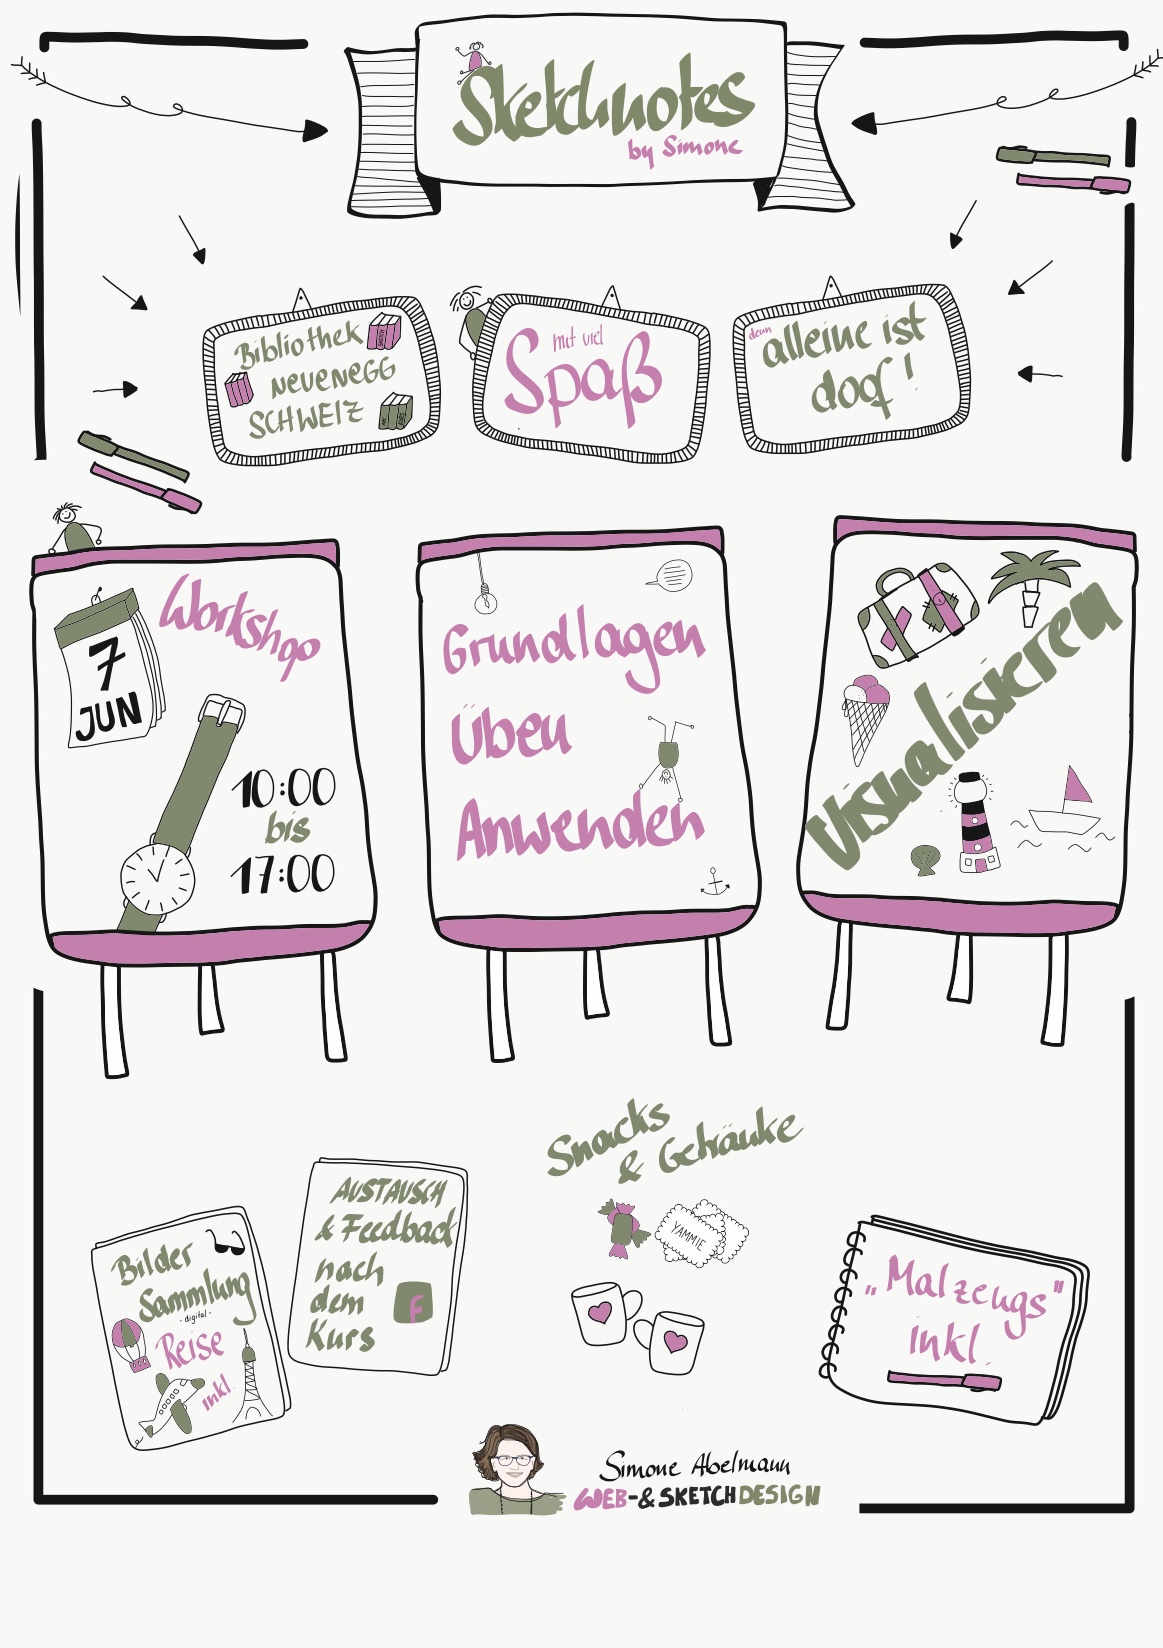 Sketchnotes
by Simone
Bibliothek
NEUENEGG
SCHWEIZ
mit viel
Spaß
denn
alleine ist
doof!
Workshop
7
JUN
10:00
bis
17:00
Grundlagen
Üben
Anwenden
Visualisieren
Snacks
& Getränke
YAMMIE
AUSTAUSCH
& Feedback
nach
dem
Kurs
f
Bilder
Sammlung
- digital -
Reise
inkl.
„Malzeugs"
inkl.
Simone Abelmann
WEB-& SKETCHDESIGN